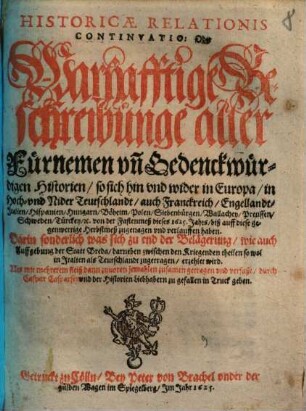 8
HISTORICÆ RELATIONIS
CONTINVATIO:
Warhafftige Be
schreibunge aller
Fürnemen vñ Gedenckwür⸗
digen Historien / so sich hin vnd wider in Europa / in
Hoch⸗vnd Nider Teutschlandt / auch Franckreich / Engellandt /
Italien / Hispanien / Hungarn / Böheim / Polen / Siebenbürgen / Wallachey / Preussen /
Schweden / Türckey / rc. von der Fastenmeß dieses 1625. Jahrs / biß auff diese ge⸗
genwertige Herbstmeß zugetragen vnd verlauffen haben.
Darin sonderlich was sich zu end der Belägerung / wie auch
Auffgebung der Statt Breda / darneben zwischen den Kriegenden theilen so wol
in Italien als Teutschlandt zugetragen / erzehlet wird.
Alles mit mehrerem fleiß dann zuvoren jemahlen zusamen getragen vnd verfasset / durch
vnd der Historien liebhabern zu gefallen in Truck geben.
Getruckt zu Cölln / Bey Peter von Brachel vnder der
gülden Wagen im Spiegelberg / Im Jahr 1625.